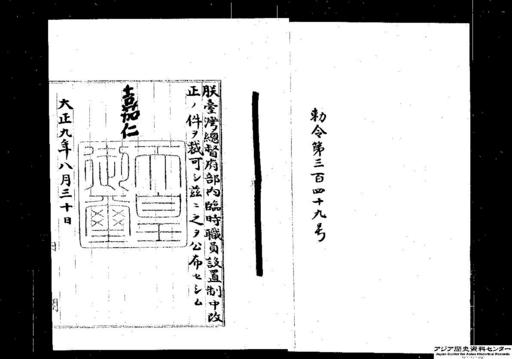 勅令第三百四十九号
朕臺灣總督府部內臨時職員設置制中改
正ノ件ヲ裁可シ茲ニ之ヲ公布セシム
嘉仁
天皇御璽
大正九年八月三十日
アジア歴史資料センター
Japan Center for Asian Historical Records